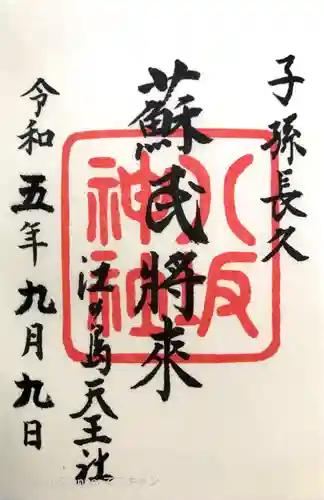 子孫長久
蘇民將來
八坂神社
江の島天王社
令和五年九月九日